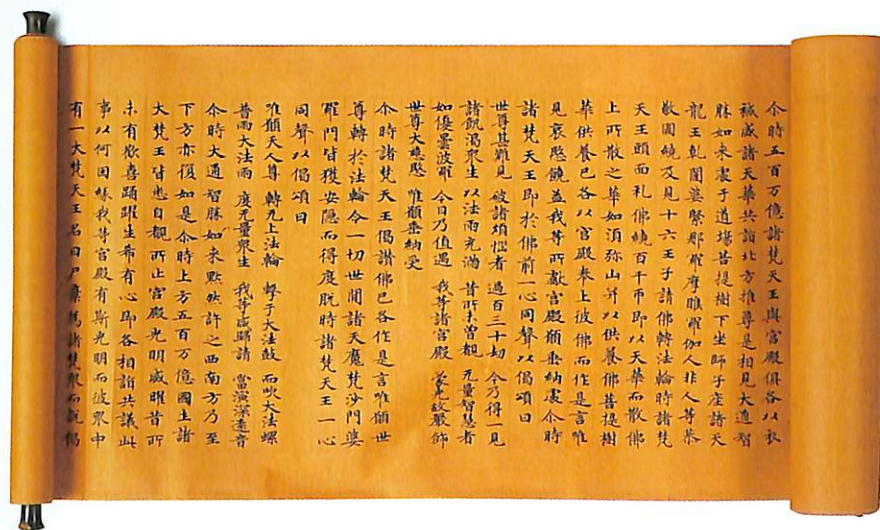 尒時五百万億諸梵天王與宮殿俱各以衣
裓盛諸天華共詣北方推尋是相見大通智
勝如來處于道場菩提樹下坐師子座諸天
龍王乹闥婆緊那羅摩睺羅伽人非人等恭
敬圍繞及見十六王子請佛轉法輪時諸梵
天王頭面礼佛繞百千帀即以天華而散佛
上所散之華如須弥山并以供養佛菩提樹
華供養已各以宮殿奉上彼佛而作是言唯
見哀愍饒益我等所獻宮殿願垂納處尒時
諸梵天王即於佛前一心同聲以偈頌曰
世尊甚難見 破諸煩惱者 過百三十劫 今乃得一見
諸飢渴衆生 以法雨充滿 昔所未曾覩 无量智慧者
如優曇波羅 今日乃值遇 我等諸宮殿 蒙光故嚴飾
世尊大慈愍 唯願垂納受
尒時諸梵天王偈讚佛已各作是言唯願世
尊轉於法輪令一切世間諸天魔梵沙門婆
羅門皆獲安隱而得度脫時諸梵天王一心
同聲以偈頌曰
唯願天人尊 轉无上法輪 擊于大法鼓 而吹大法螺
普雨大法雨 度无量衆生 我等咸歸請 當演深遠音
尒時大通智勝如來默然許之西南方乃至
下方亦復如是尒時上方五百万億國土諸
大梵王皆悉自覩所止宮殿光明威曜昔所
未有歡喜踊躍生希有心即各相詣共議此
事以何因緣我等宮殿有斯光明而彼衆中
有一大梵天王名曰尸棄為諸梵衆而說偈